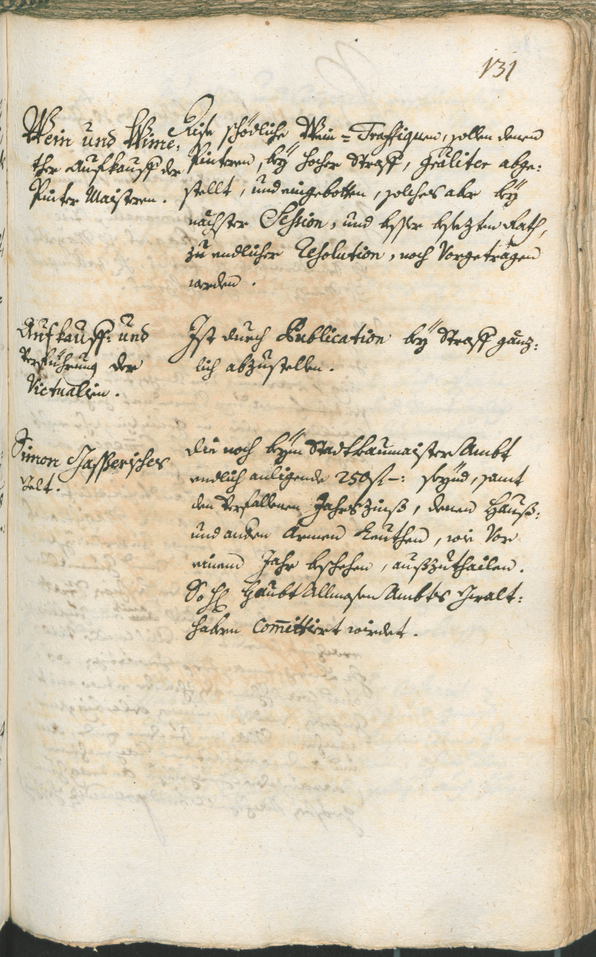 131
Wein und Wime-
ther Aufkauff der
Pinter Maisteren.
Dise schödliche Wein-Traffiquen, sollen denen
Pinteren, beÿ hocher Straff, gräliter abge-
stellt, und eingebotten, solches aber beÿ
nächster Session, und besser besezten Rath,
zu endlicher Resolution, noch Vorgetragen
werden.
Aufkauff- und
Verführung der
Victualien.
Ist durch Publication beÿ Straff gänz-
lich abzustellen.
Simon
Gelt.
die noch beÿm Stadtbaumaister Ambt
endlich anligende 250 f -: seynd, samt
den Verfallenen Jahrs Zinß, denen Hauß-
und anderen Armen Leuthen, wie Vor
einem Jahr beschehen, außzuthailen.
So H: Haubt Allmosen Ambts Gwalt-
haberen Committiert wirdet.